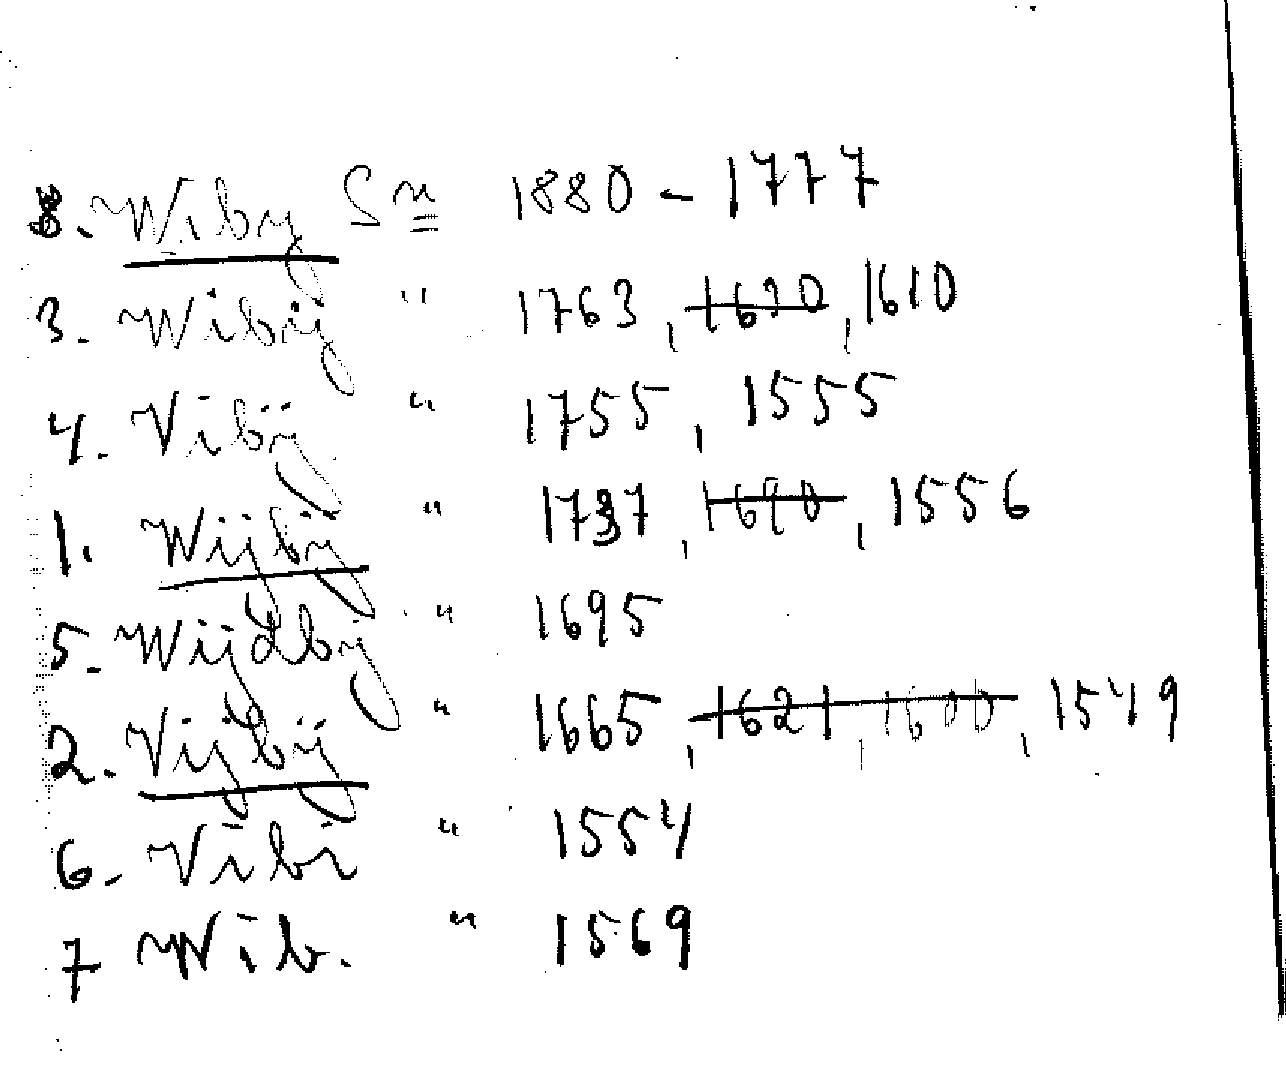 8. Wiby Sn 1880 - 1777
3. Wibÿ " 1763, 1630, 1610
4. Vibÿ " 1755, 1555
1. Wijbÿ " 1737, 1690, 1556
5. Wijdbÿ " 1695
2. Vijbÿ " 1665, 1621, 1600, 1549
6. Vibi " 1554
7 Wib. " 1569